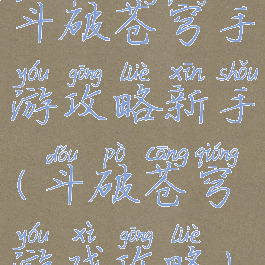 斗破苍穹手
yóu gōng lüè xīn shǒu
游攻略新手
dǒu pò cāng qióng
(斗破苍穹
yóu xì gōng lüè
游戏攻略)